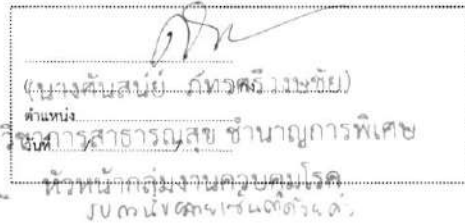 (นางศันสนีย์ ภัทรศรีวงษชัย)
ตำแหน่ง
วิชาการสาธารณสุข ชำนาญการพิเศษ
วันที่
หัวหน้ากลุ่มงานควบคุมโรค